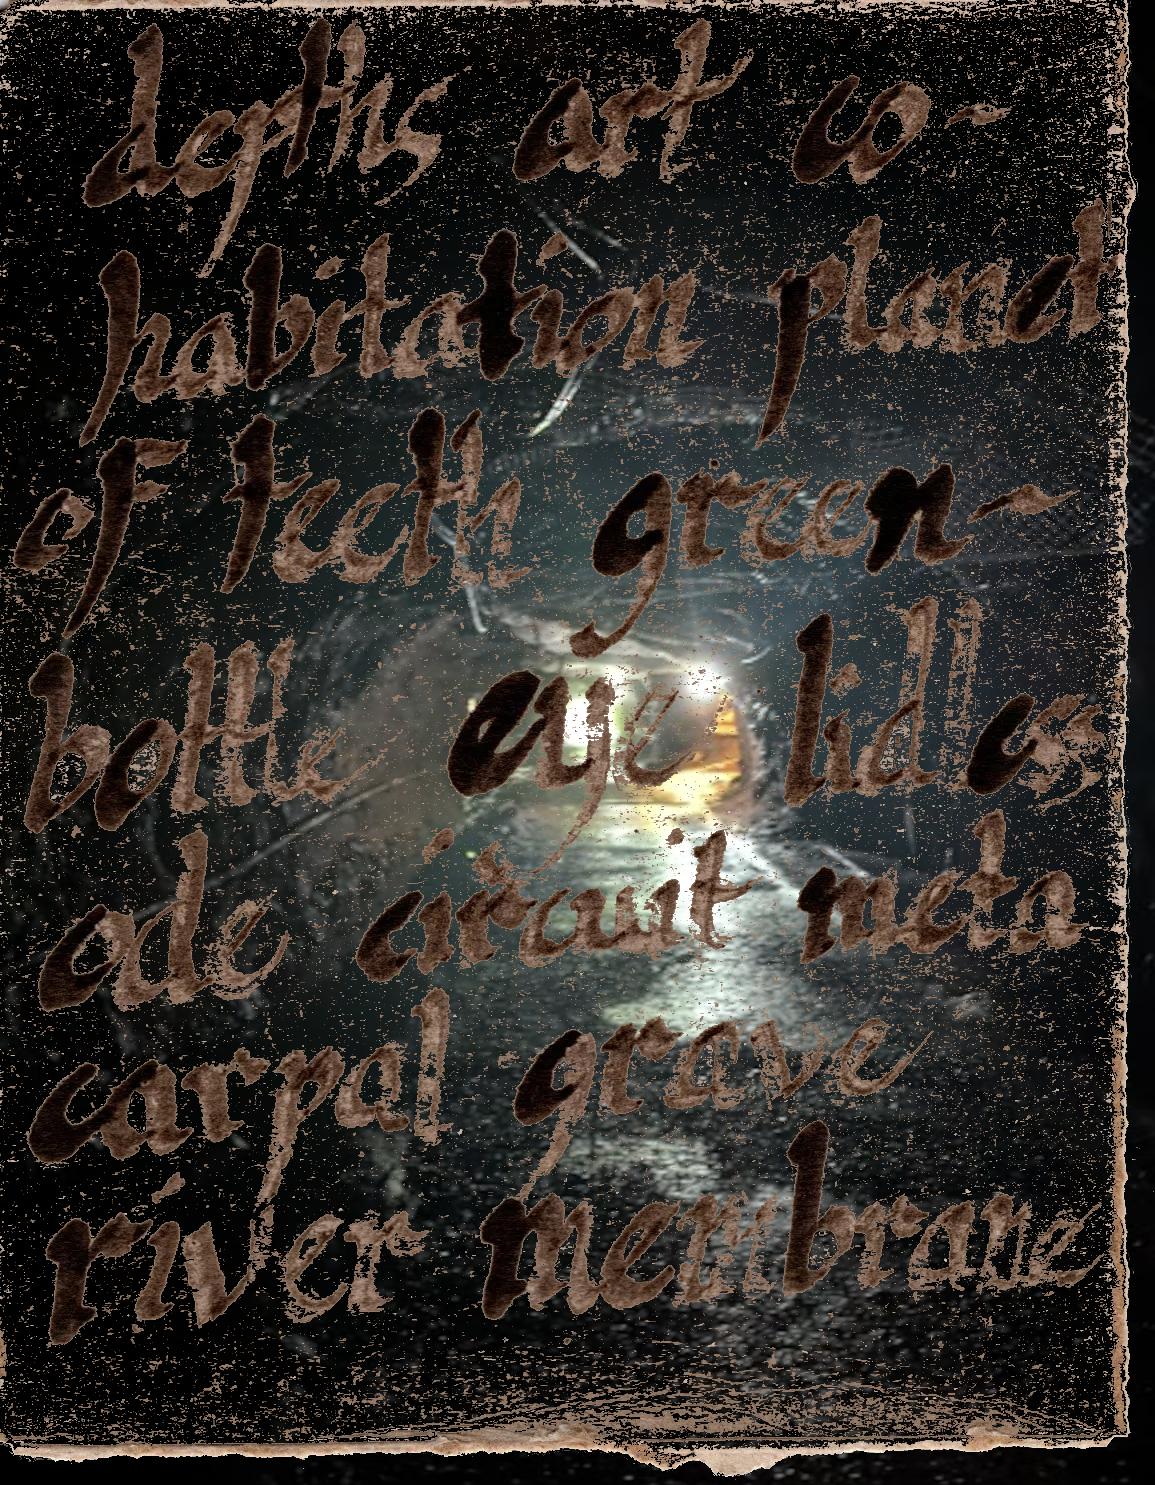 depths art co-
habitation planet
of teeth green-
bottle eye lidless
ade circuit meta
carpal grave
river membrane